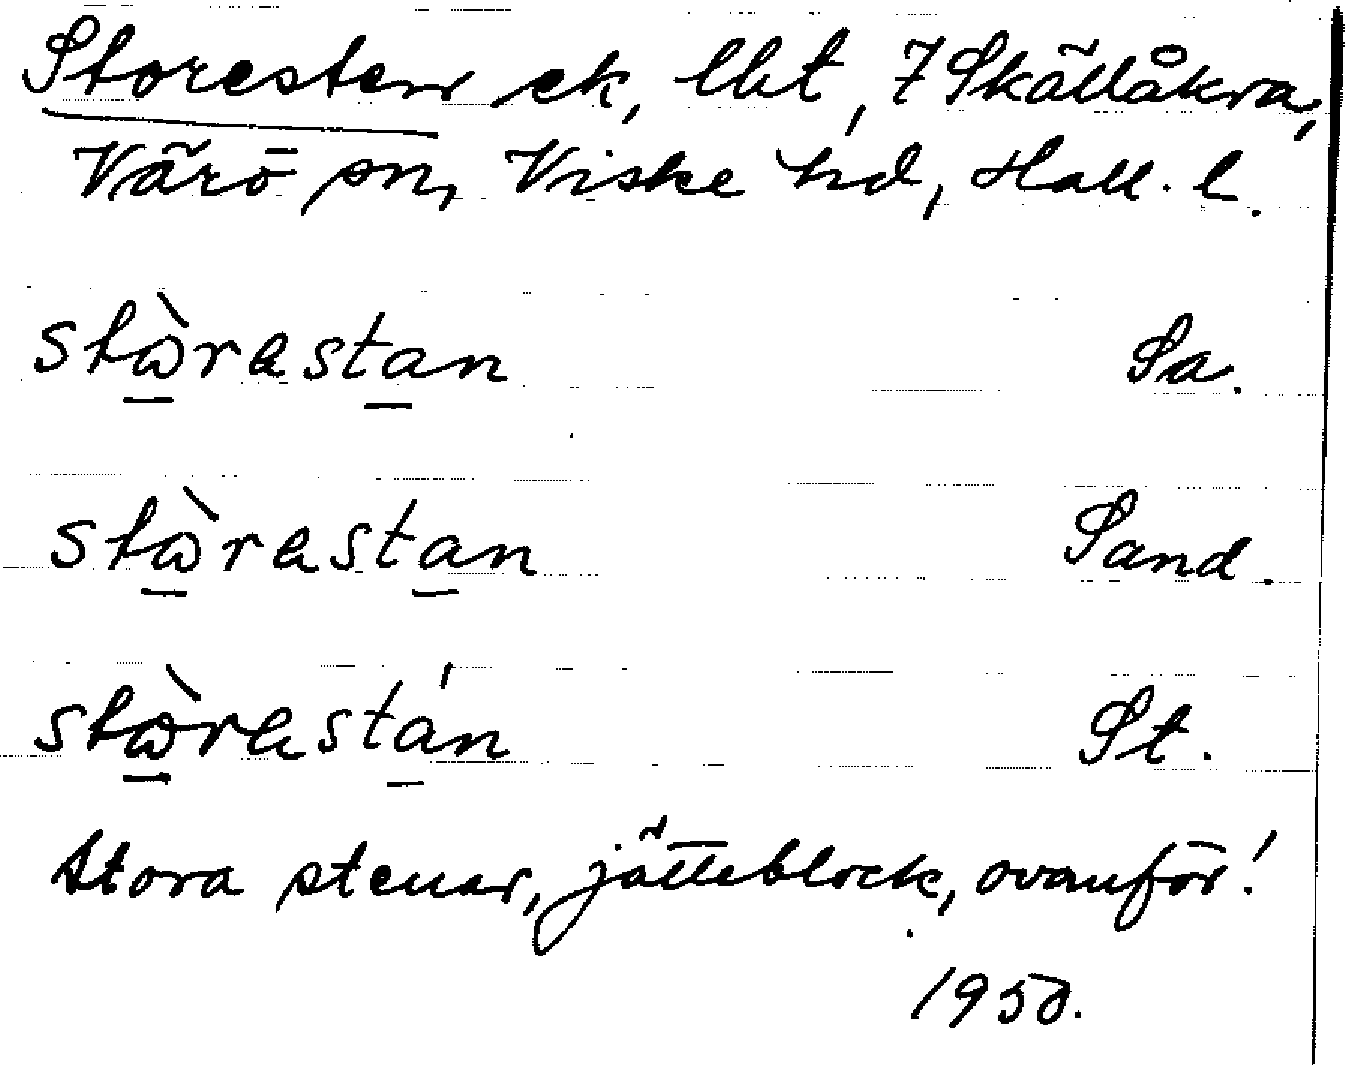 Storesten ek, lht, 7 Skällåkra,
Värö sn, Viske hd, Hall. l.
stὼrastan Sa.
stὼrastan Sand.
stὼrastán St.
Stora stenar, jätteblock, ovanför!
1950.